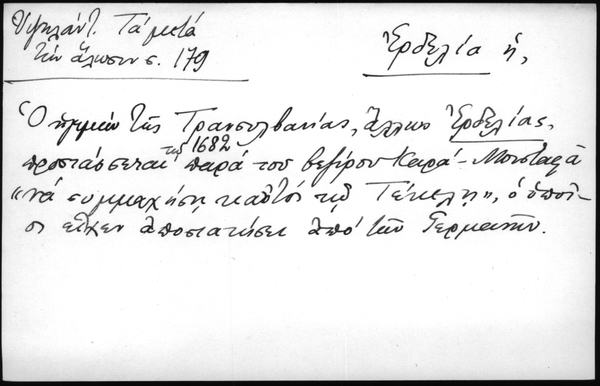 Ὑψηλάντ. Τὰ μετὰ
τὴν ἅλωσιν σ. 179
Ἐρδελία ἡ,
Ὁ ἡγεμὼν τῆς Τρανσυλβανίας, ἄλλως Ἐρδελίας,
προστάσσεται τῷ 1682 παρὰ τοῦ βεζίρου Καρᾶ-Μουσταφᾶ
"νὰ συμμαχήσῃ καὶ αὐτὸς τῷ Τέκελῃ", ὁ ὁποῖ-
ος εἶχεν ἀποστατήσει ἀπὸ τῶν Γερμανῶν.